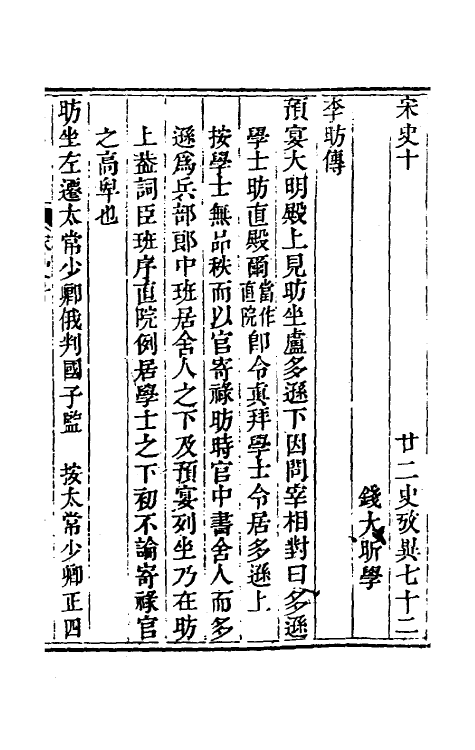 宋史十　廿二史攷異七十二
錢大昕學
李昉傳
預宴大明殿上見昉坐盧多遜下因問宰相對曰多遜
學士昉直殿爾當作直院卽令眞拜學士令居多遜上
按學士無品秩而以官寄祿昉時官中書舍人而多
遜爲兵部郎中班居舍人之下及預宴列坐乃在昉
上葢詞臣班序直院例居學士之下初不論寄祿官
之高卑也
昉坐左遷太常少卿俄判國子監　按太常少卿正四